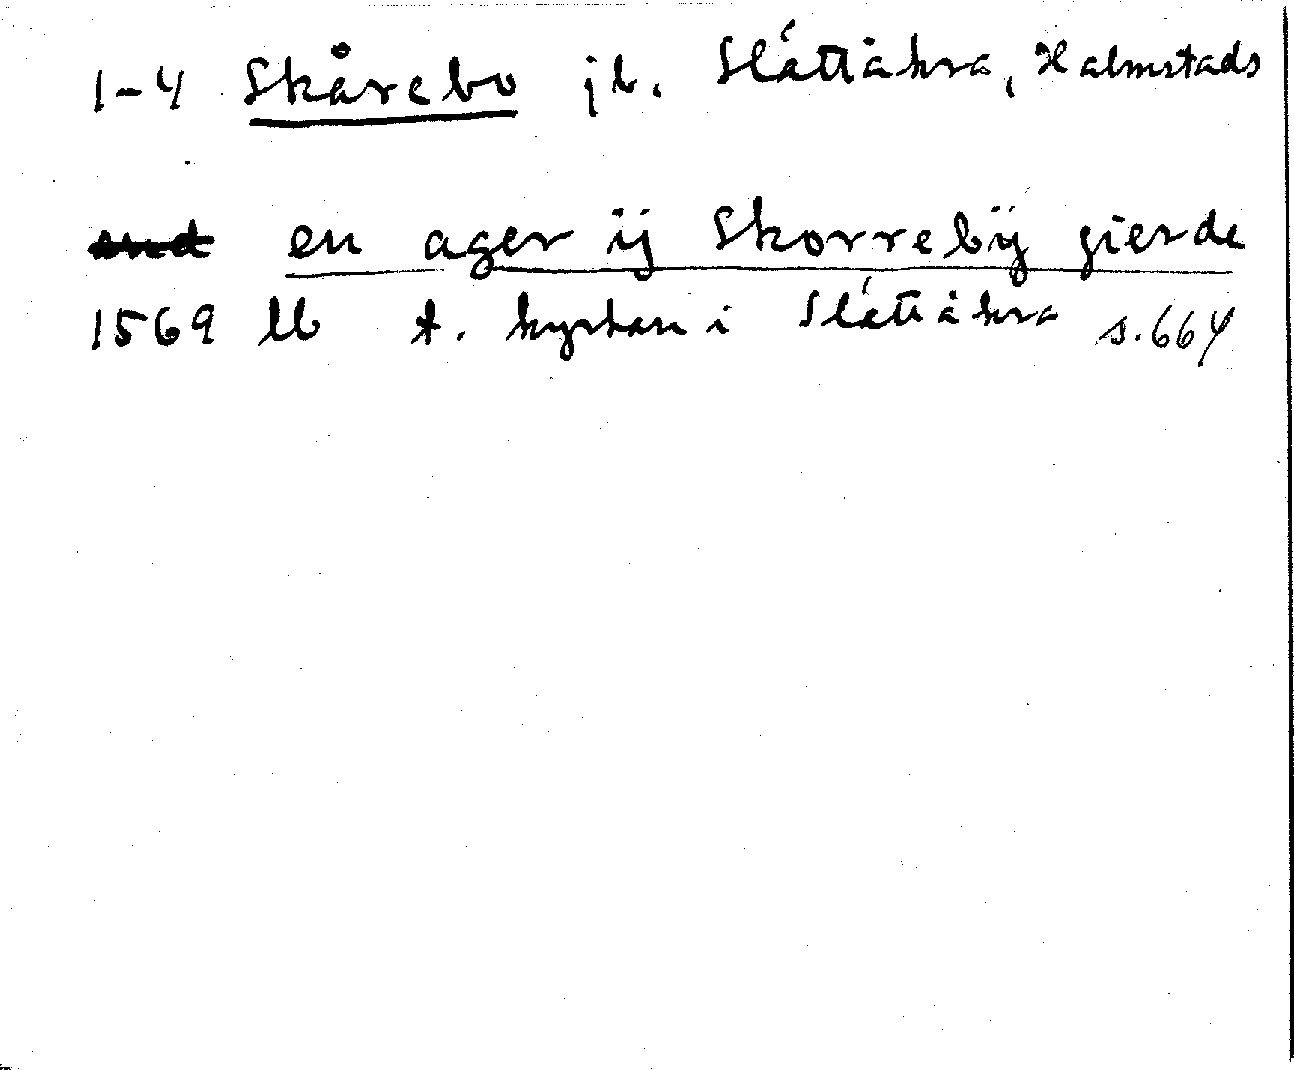 1-4 Skårebo jb. Slättåkra, Halmstads
en ager ij Skorrebÿ gierde
1569 LLb t. kyrkan i Slättåkra s.664